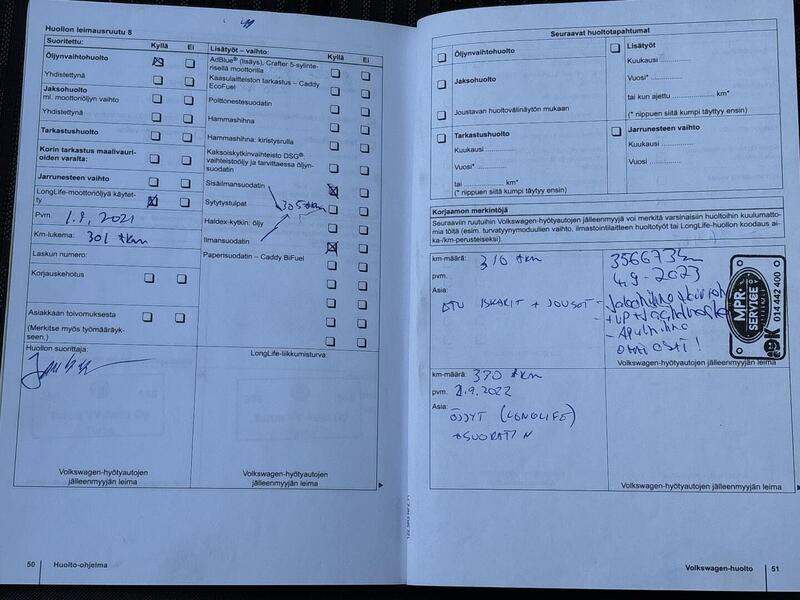 Huollon leimausruutu 8
Suoritettu: Kyllä Ei
Öljynvaihtohuolto
Yhdistettynä
Jaksohuolto
ml. moottoriöljyn vaihto
Yhdistettynä
Tarkastushuolto
Korin tarkastus maalivauri-
oiden varalta:
Jarrunesteen vaihto
LongLife-moottoriöljyä käytet-
ty
Pvm. 1.8, 2021
Km-lukema: 301 tkm
Laskun numero:
Korjauskehotus
Asiakkaan toivomuksesta
(Merkitse myös työmääräyk-
seen.)
Huollon suorittaja:
Volkswagen-hyötyautojen
jälleenmyyjän leima
Lisätyöt – vaihto: Kyllä Ei
AdBlue® (lisäys), Crafter 5-sylinte-
risellä moottorilla
Kaasulaitteiston tarkastus – Caddy
EcoFuel
Polttonestesuodatin
Hammashihna
Hammashihna: kiristysrulla
Kaksoiskytkinvaihteisto DSG®:
vaihteistoöljy ja tarvittaessa öljyn-
suodatin
Sisäilmansuodatin
305 tkm
Sytytystulpat
Haldex-kytkin: öljy
Ilmansuodatin
Paperisuodatin – Caddy BiFuel
LongLife-liikkumisturva:
Volkswagen-hyötyautojen
jälleenmyyjän leima
50 Huolto-ohjelma
Seuraavat huoltotapahtumat
Öljynvaihtohuolto
Jaksohuolto
Joustavan huoltovälinäytön mukaan
Lisätyöt
Kuukausi
Vuosi*
tai kun ajettu km*
(* riippuen siitä kumpi täyttyy ensin)
Tarkastushuolto
Kuukausi
Vuosi*
tai km*
(* riippuen siitä kumpi täyttyy ensin)
Jarrunesteen vaihto
Kuukausi
Vuosi
Korjaamon merkintöjä
Seuraaviin ruutuihin Volkswagen-hyötyautojen jälleenmyyjä voi merkitä varsinaisiin huoltoihin kuulumatto-
mia töitä (esim. turvatyynymoduulien vaihto, ilmastointilaitteen huoltotyöt tai LongLife-huollon koodaus ai-
ka-/km-perusteiseksi).
km-määrä: 310 tkm
pvm.
Asia:
ETU ISKARIT + JOUSET
356673km
4.9-2023
- Apuhihna
OMAT OSAT!
MPR-
SERVICE
OK 014 442 400
Volkswagen-hyötyautojen
jälleenmyyjän leima
km-määrä: 330 tkm
pvm. 2.9.2022
Asia:
ÖLJYT (LONGLIFE)
+SUODATIN
Volkswagen-hyötyautojen
jälleenmyyjän leima
Volkswagen-huolto 51